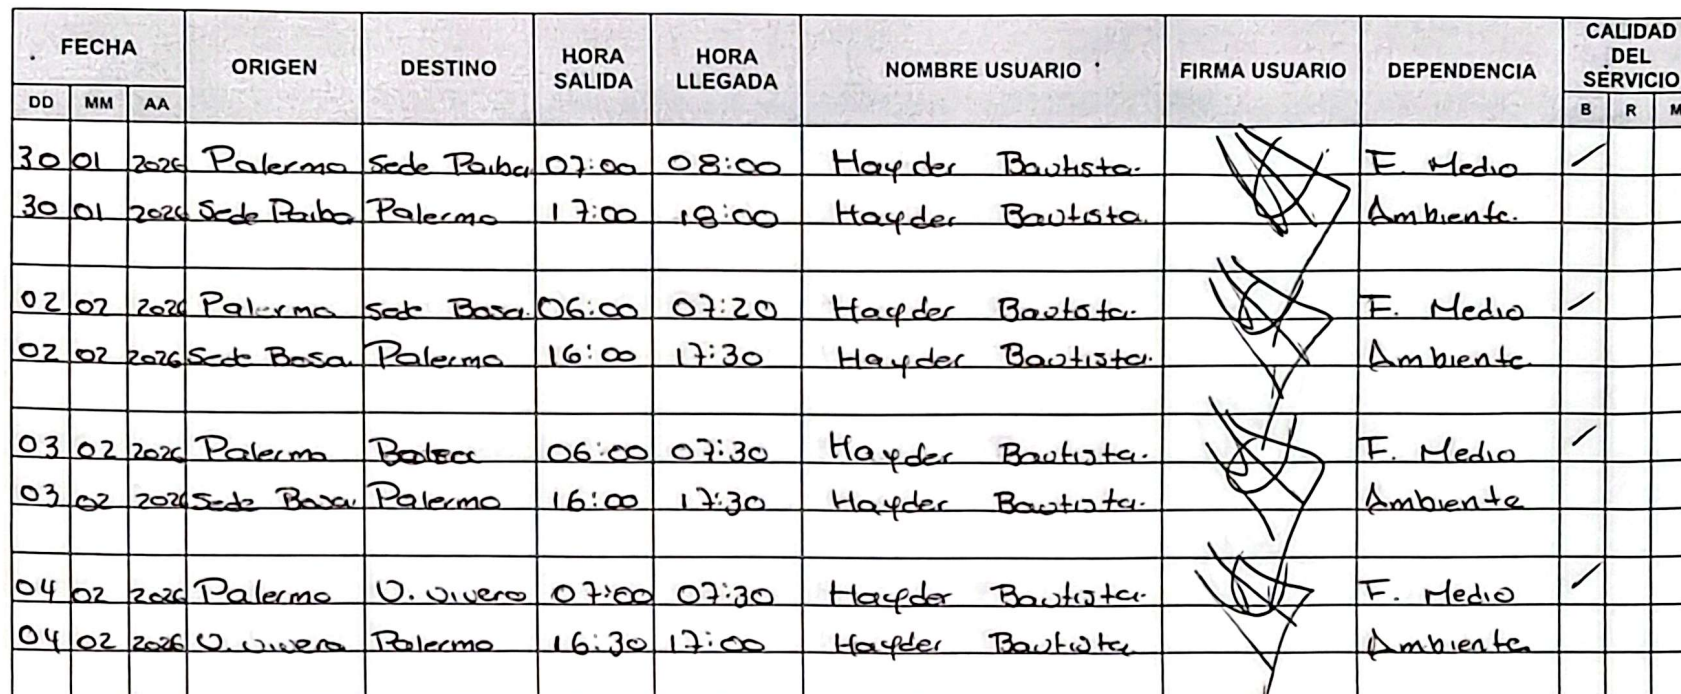 FECHA ORIGEN DESTINO HORA SALIDA HORA LLEGADA NOMBRE USUARIO FIRMA USUARIO DEPENDENCIA CALIDAD DEL SERVICIO
DD MM AA B R M
30 01 2026 Palermo Sede Paiba 07:00 08:00 Hayder Bautista. F. Medio /
30 01 2026 Sede Paiba Palermo 17:00 18:00 Hayder Bautista. Ambiente.
02 02 2026 Palermo Sede Bosa. 06:00 07:20 Hayder Bautista. F. Medio /
02 02 2026 Sede Bosa Palermo 16:00 17:30 Hayder Bautista. Ambiente
03 02 2026 Palermo 06:00 07:30 Hayder Bautista. F. Medio /
03 02 2026 Sede Bosa Palermo 16:00 17:30 Hayder Bautista. Ambiente
04 02 2026 Palermo U. vivero 07:00 07:30 Hayder Bautista. F. Medio /
04 02 2026 U. vivero Palermo 16:30 17:00 Hayder Bautista Ambiente